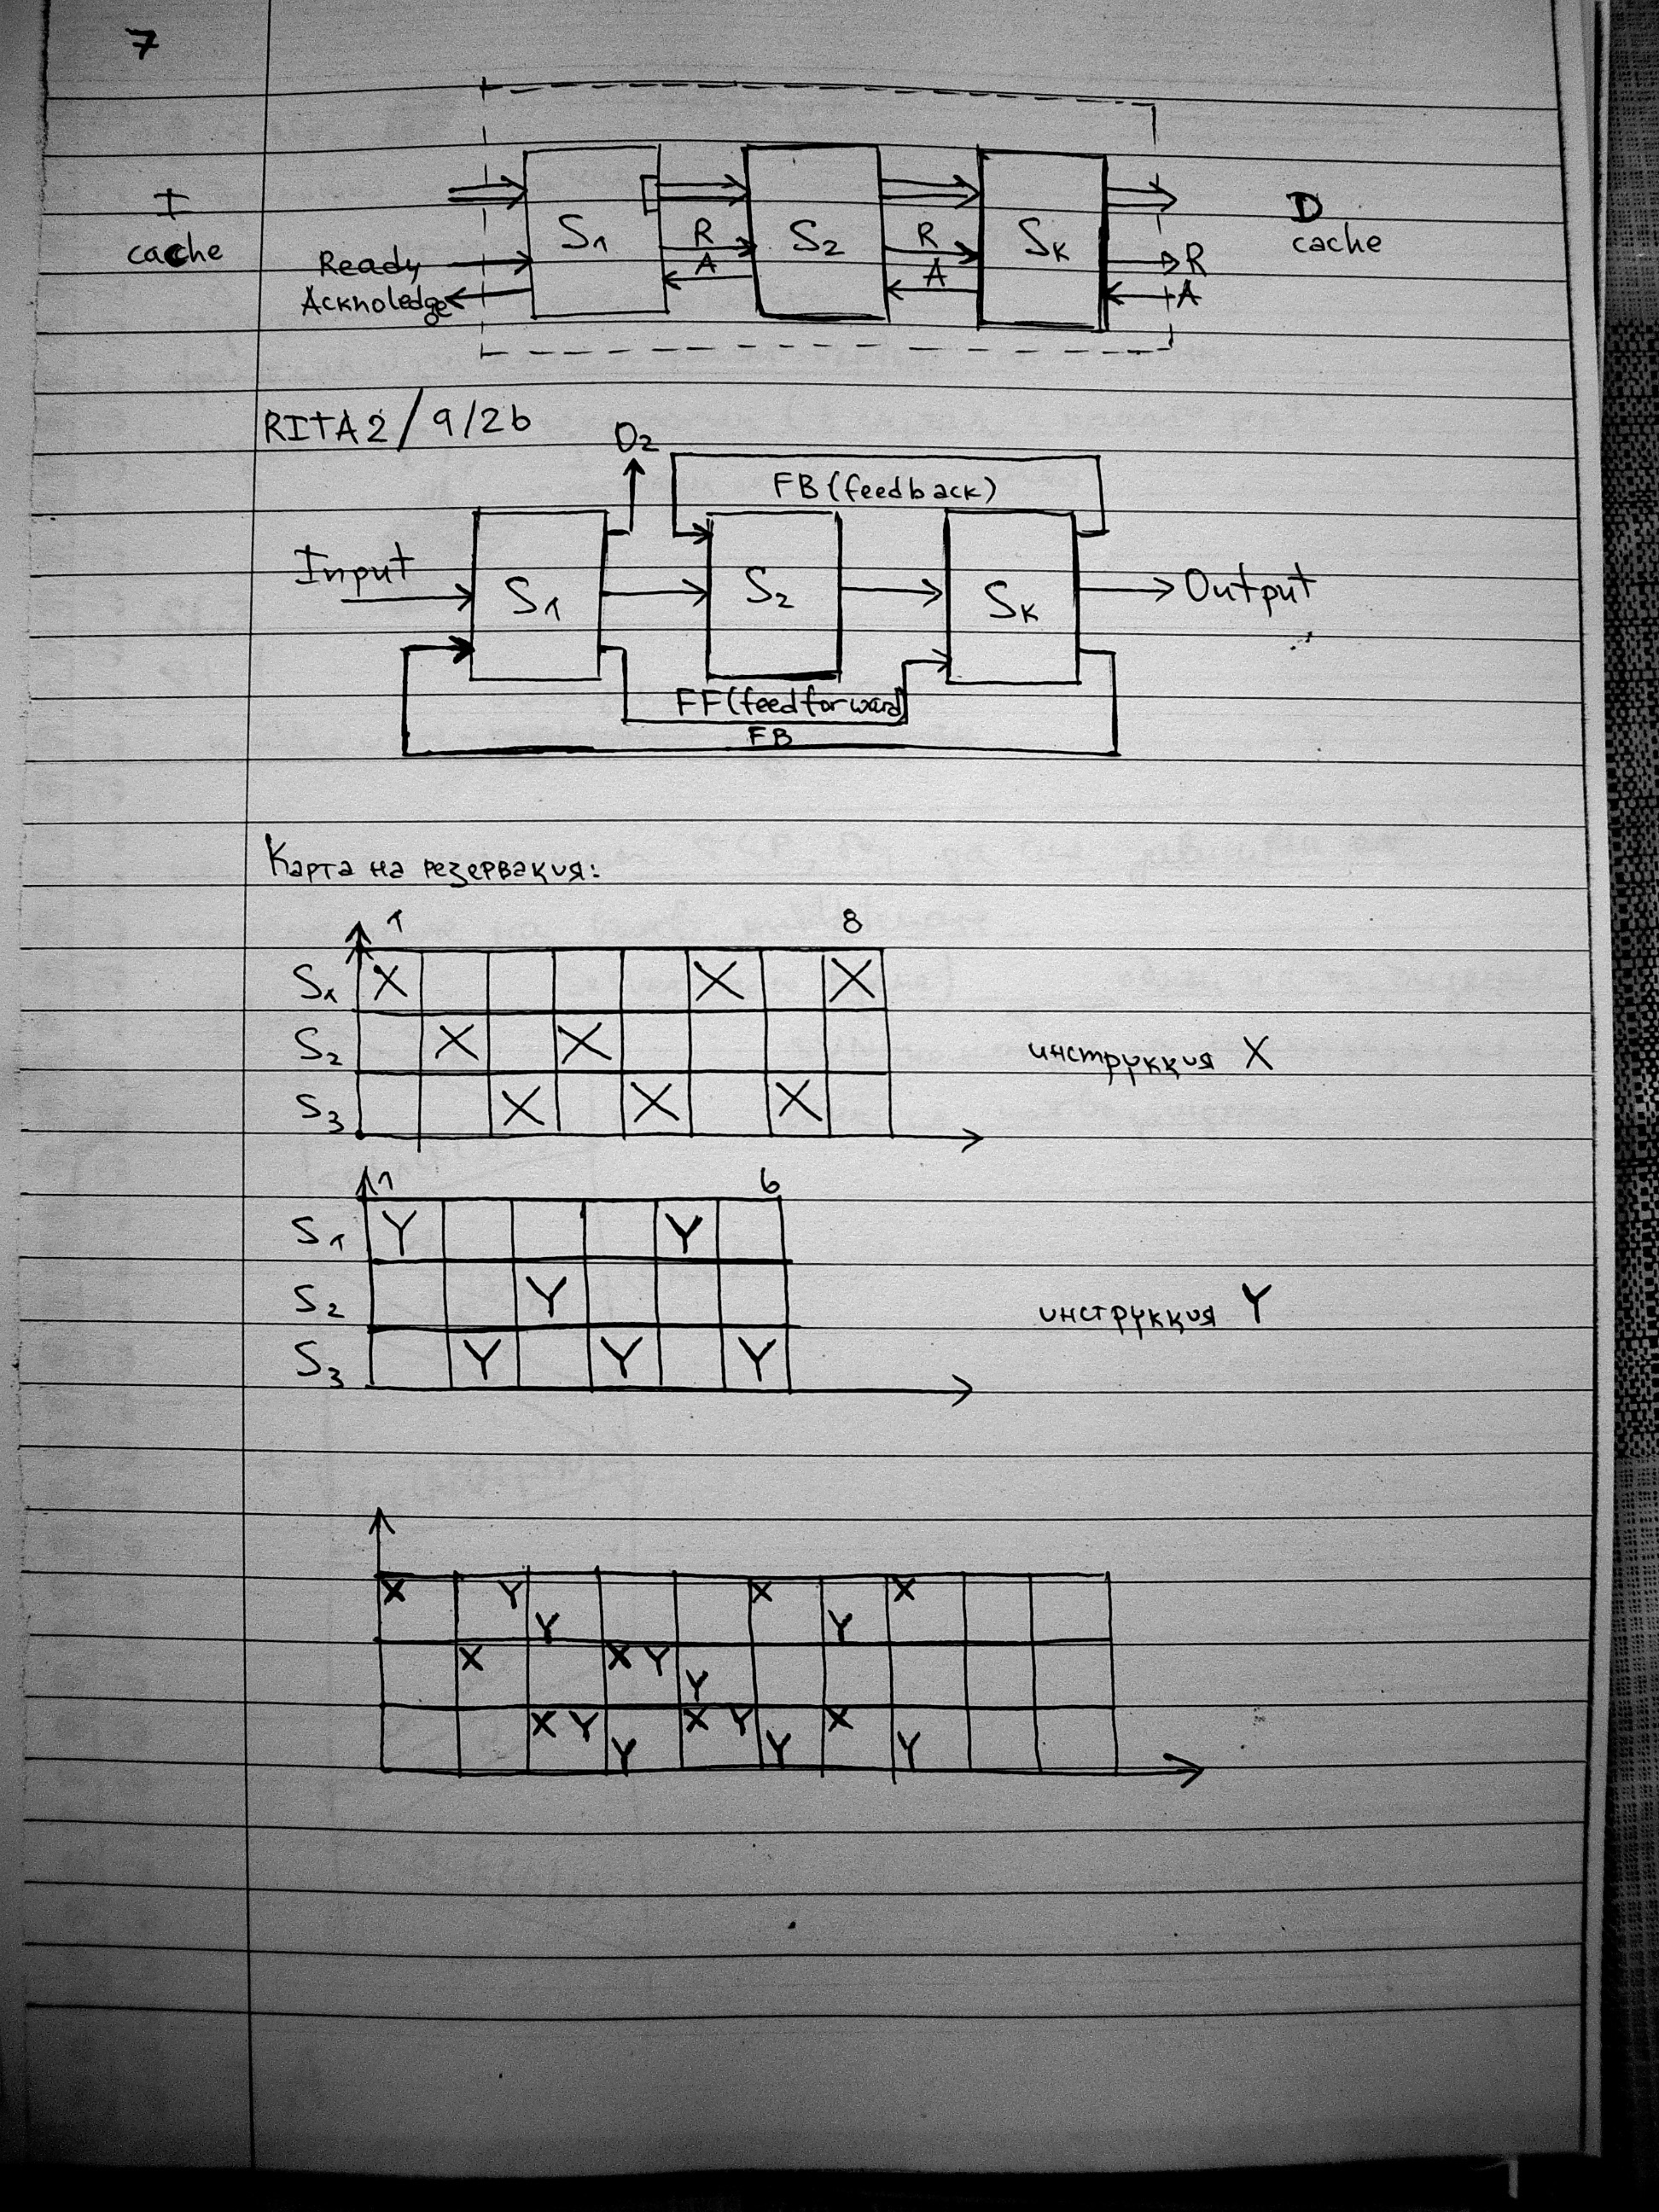 7
I
cache
Ready
Acknoledge
S1
R
A
S2
R
A
SK
R
A
D
cache
RITA2/9/2b
O2
FB (feedback)
Input
S1
S2
SK
Output
FF (feedforward)
FB
Карта на резервакция:
1 8
S1 X X X
S2 X X
S3 X X X
инструкция X
1 6
S1 Y Y
S2 Y
S3 Y Y Y
инструкция Y
X Y X X
Y Y
X X Y
Y
X Y X Y X
Y Y Y